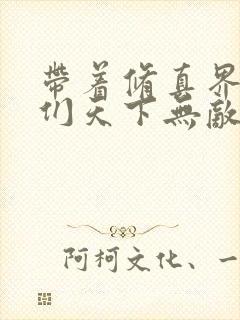 帶着脩真界
们天下無敵
阿柯文化、一